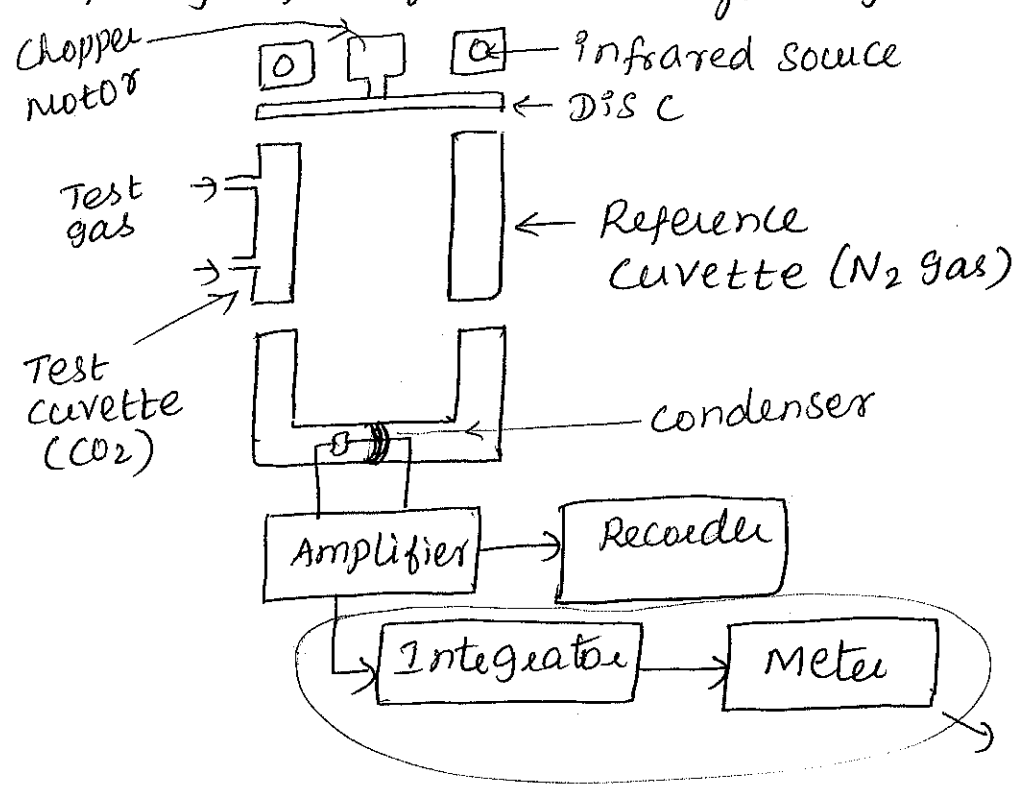 Chopper
Motor
Infrared source
Disc
Test
gas
Reference
Cuvette (N2 gas)
Test
cuvette
(CO2)
condenser
Amplifier
Recorder
Integrator
Meter